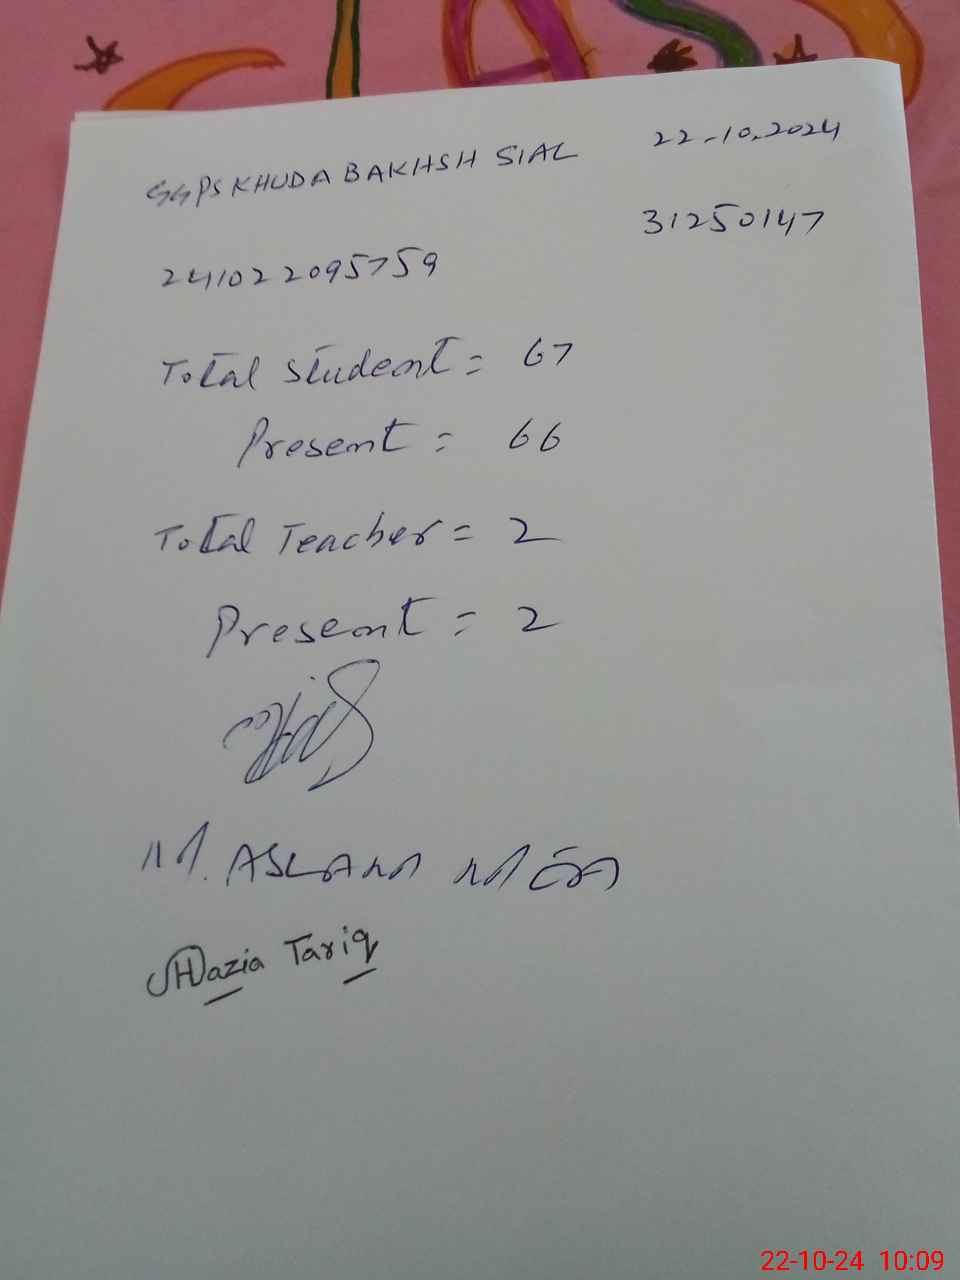 GGPS KHUDA BAKHSH SIAL 22-10-2024
31250147
241022095759
Total Student = 67
Present = 66
Total Teacher = 2
Present = 2
M. ASLAM MEA
SHazia Tariq
22-10-24 10:09